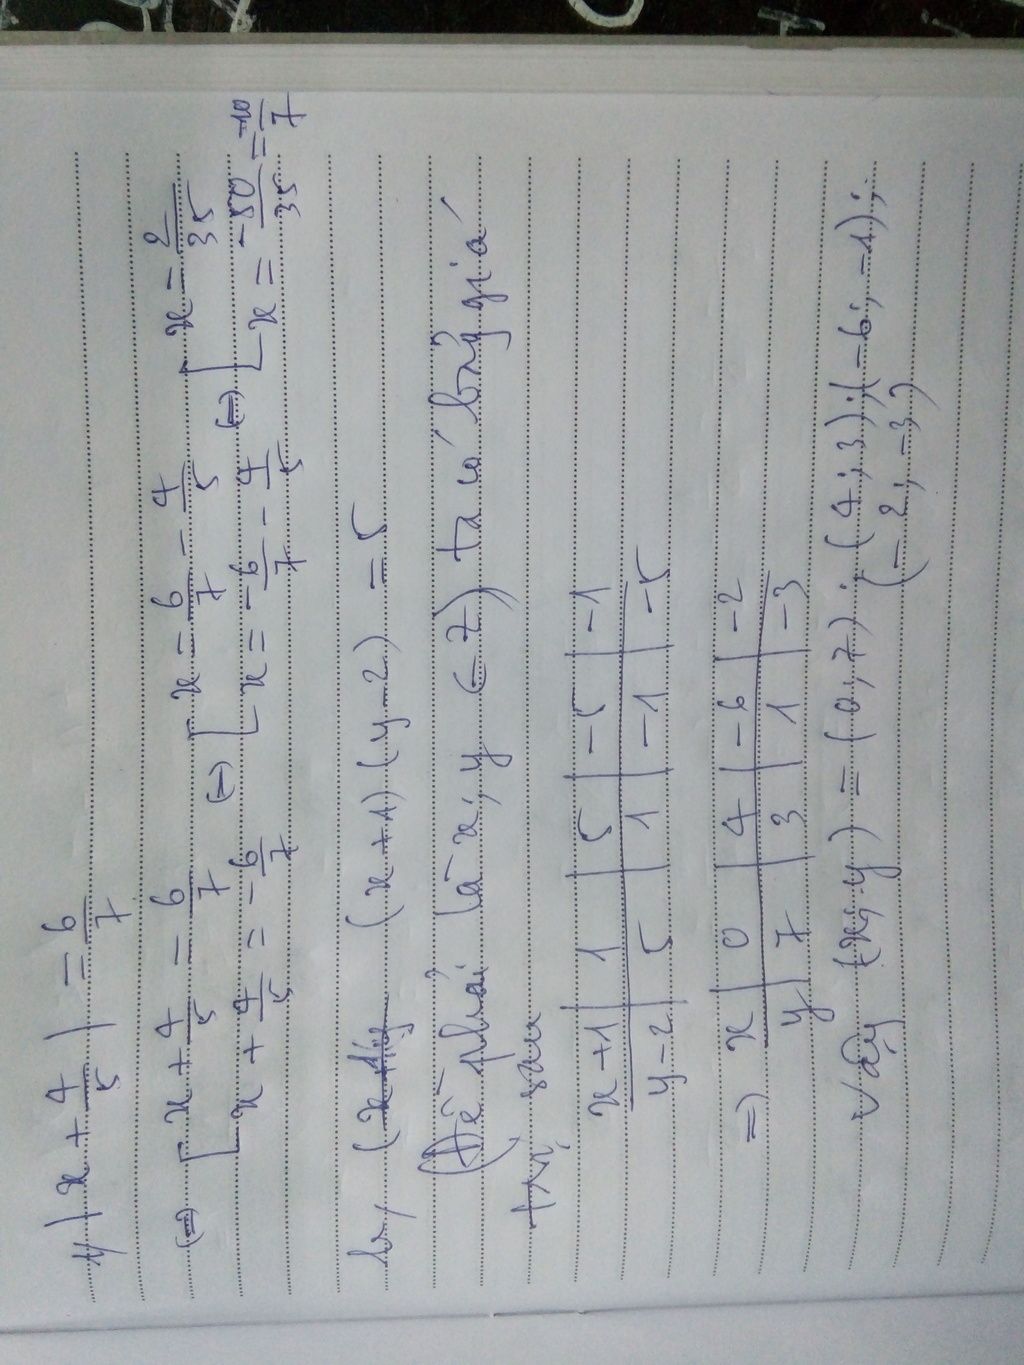 y |x + 4/5| = 6/7
(=) [ x + 4/5 = 6/7 (=) [ x = 6/7 - 4/5 (=) [ x = 2/35
[ x + 4/5 = -6/7 [ x = -6/7 - 4/5 [ x = -50/35 = -10/7
b, (x+1)(y-2) = 5
(Đề phải là x; y ∈ Z) ta có bảng giá
trị sau
x+1 | 1 | 5 | -5 | -1
y-2 | 5 | 1 | -1 | -5
=) x | 0 | 4 | -6 | -2
y | 7 | 3 | 1 | -3
Vậy (x; y) = (0; 7); (4; 3); (-6; -1);
(-2; -3)